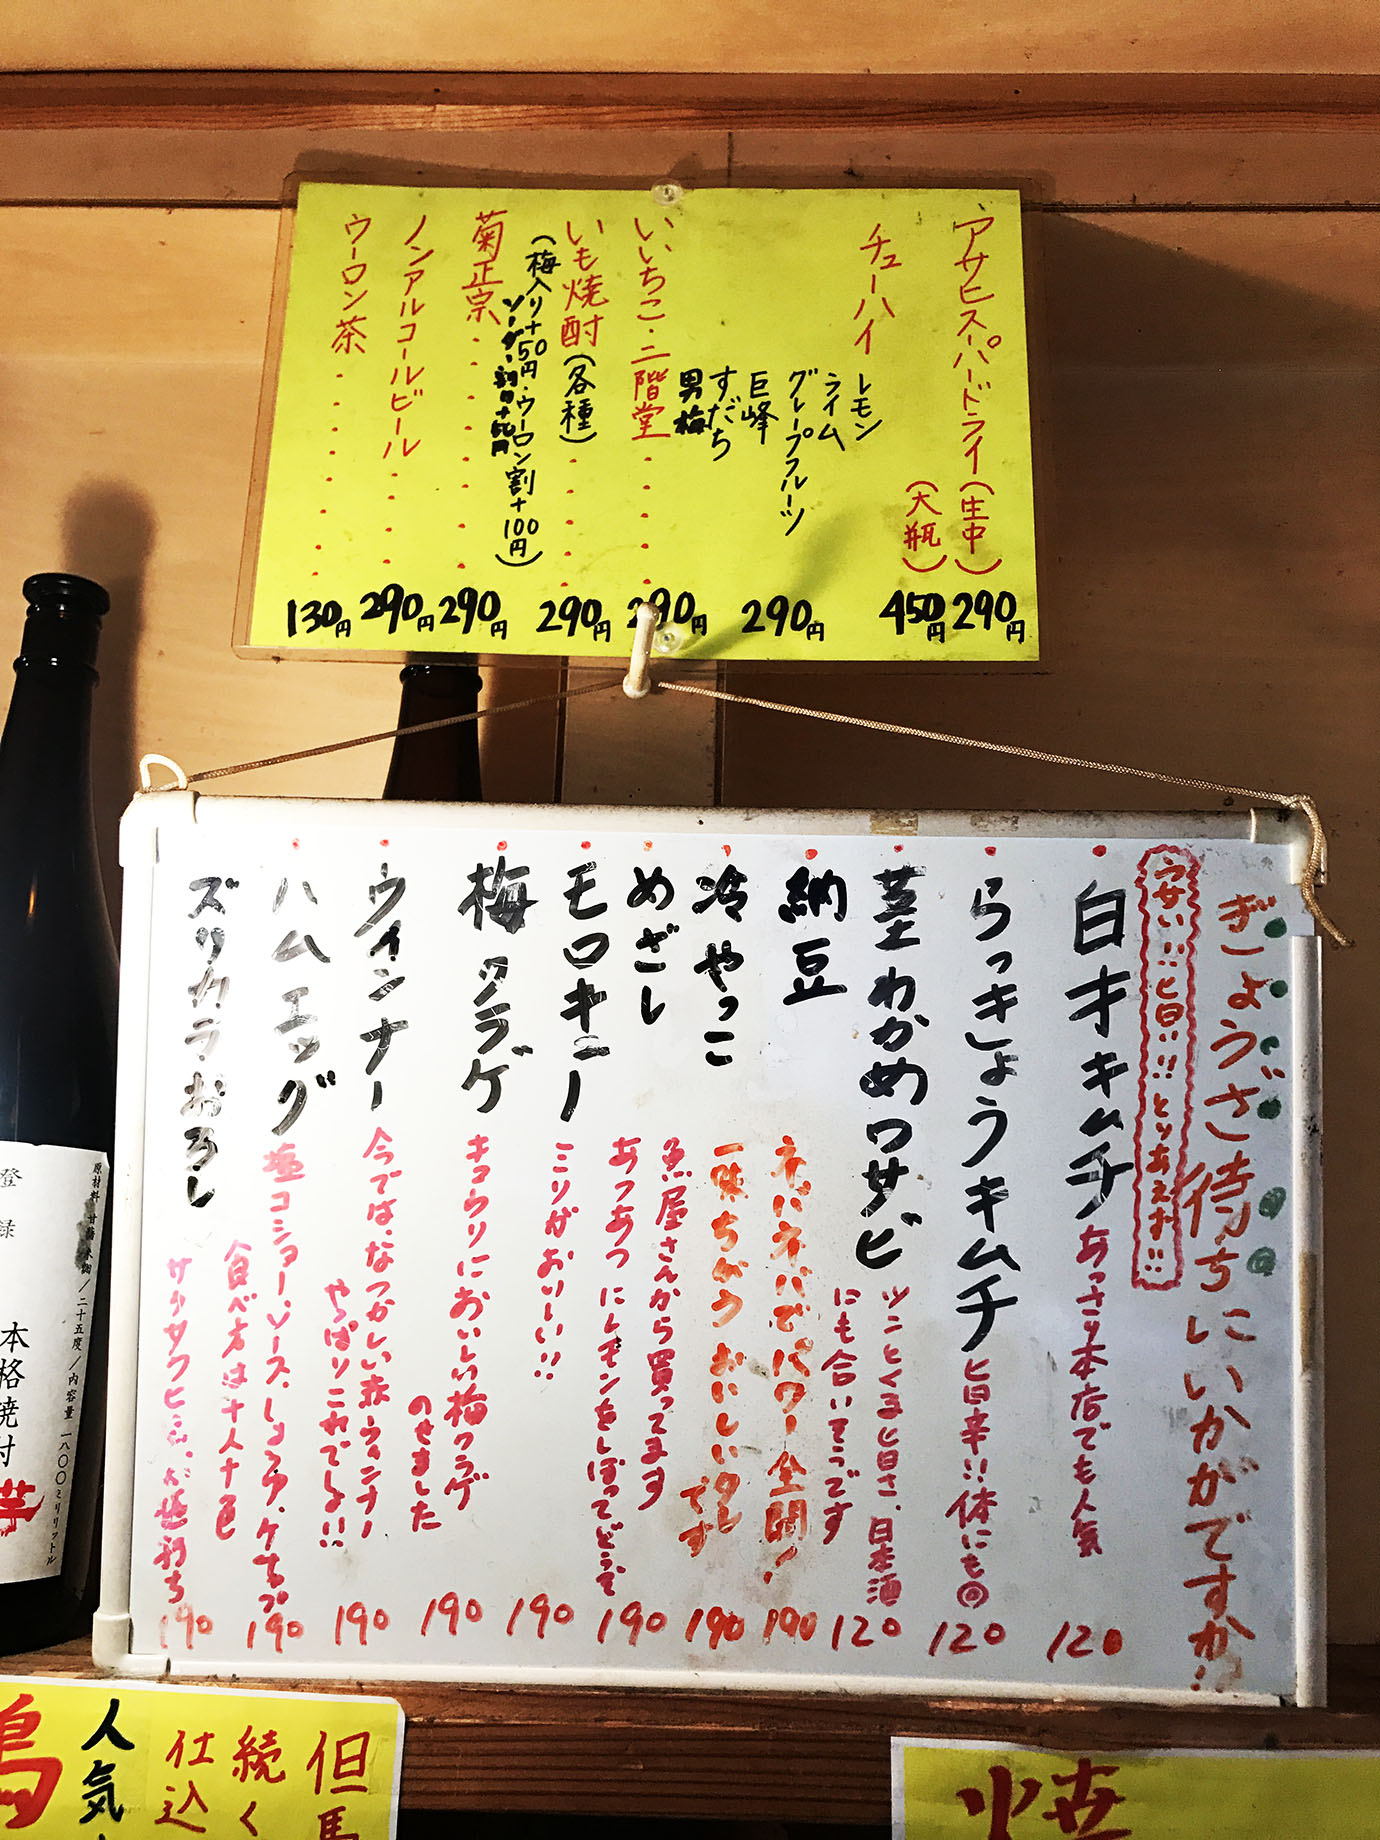 アサヒスーパードライ(生中) 290円
(大瓶) 450円
チューハイ
レモン
ライム
グレープフルーツ
巨峰
すだち
男梅
290円
いいちこ・二階堂 290円
いも焼酎(各種) 290円
(梅入り+50円・ウーロン割+100円)
ソーダー割り+50円
菊正宗 290円
ノンアルコールビール 290円
ウーロン茶 130円
ぎょうざ待ちにいかがですか!
安い!!旨い!!とりあえず!!
白才キムチ あっさり本店でも人気 120
らっきょうキムチ 旨辛!!体にも◎ 120
茎わかめワサビ ツンとくる旨さ、日本酒
にも合いそうです 120
納豆 ネバネバでパワー全開! 190
冷やっこ 一味ちがうおいしいタレ
です 190
めざし 魚屋さんから買ってます
あつあつにレモンをしぼってどうぞ 190
モロキュー ミリがおいしい!! 190
梅クラゲ キュウリにおいしい梅クラゲ
のせました 190
ウィンナー 今では、なつかしい赤ウィンナー
やっぱりこれでしょ!! 190
ハムエッグ 塩コショー・ソース、しょうゆ、ケチャップ
食べ方は十人十色 190
ズリカラ・おろし 190
登録
原材料 甘藷・米麹/二十五度/内容量 一八〇〇ミリリットル
本格焼酎
芋
但馬
続く
仕込
人気
鳥
焼